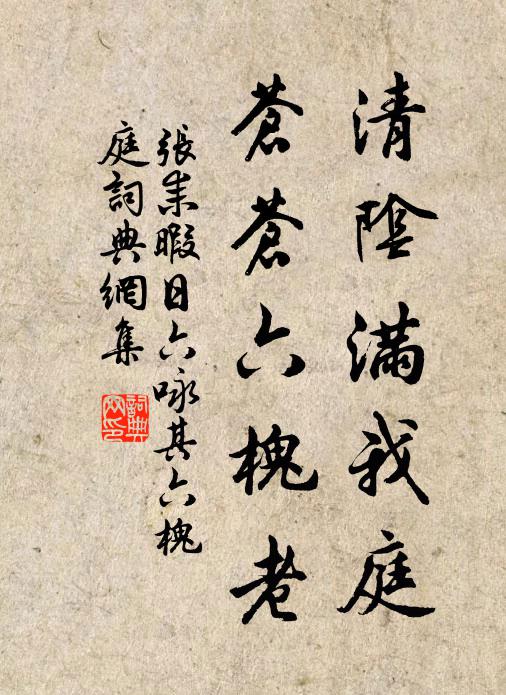 清陰滿我庭
蒼蒼六槐老
張耒暇日六咏其六槐
庭詞典網集
詞典網印